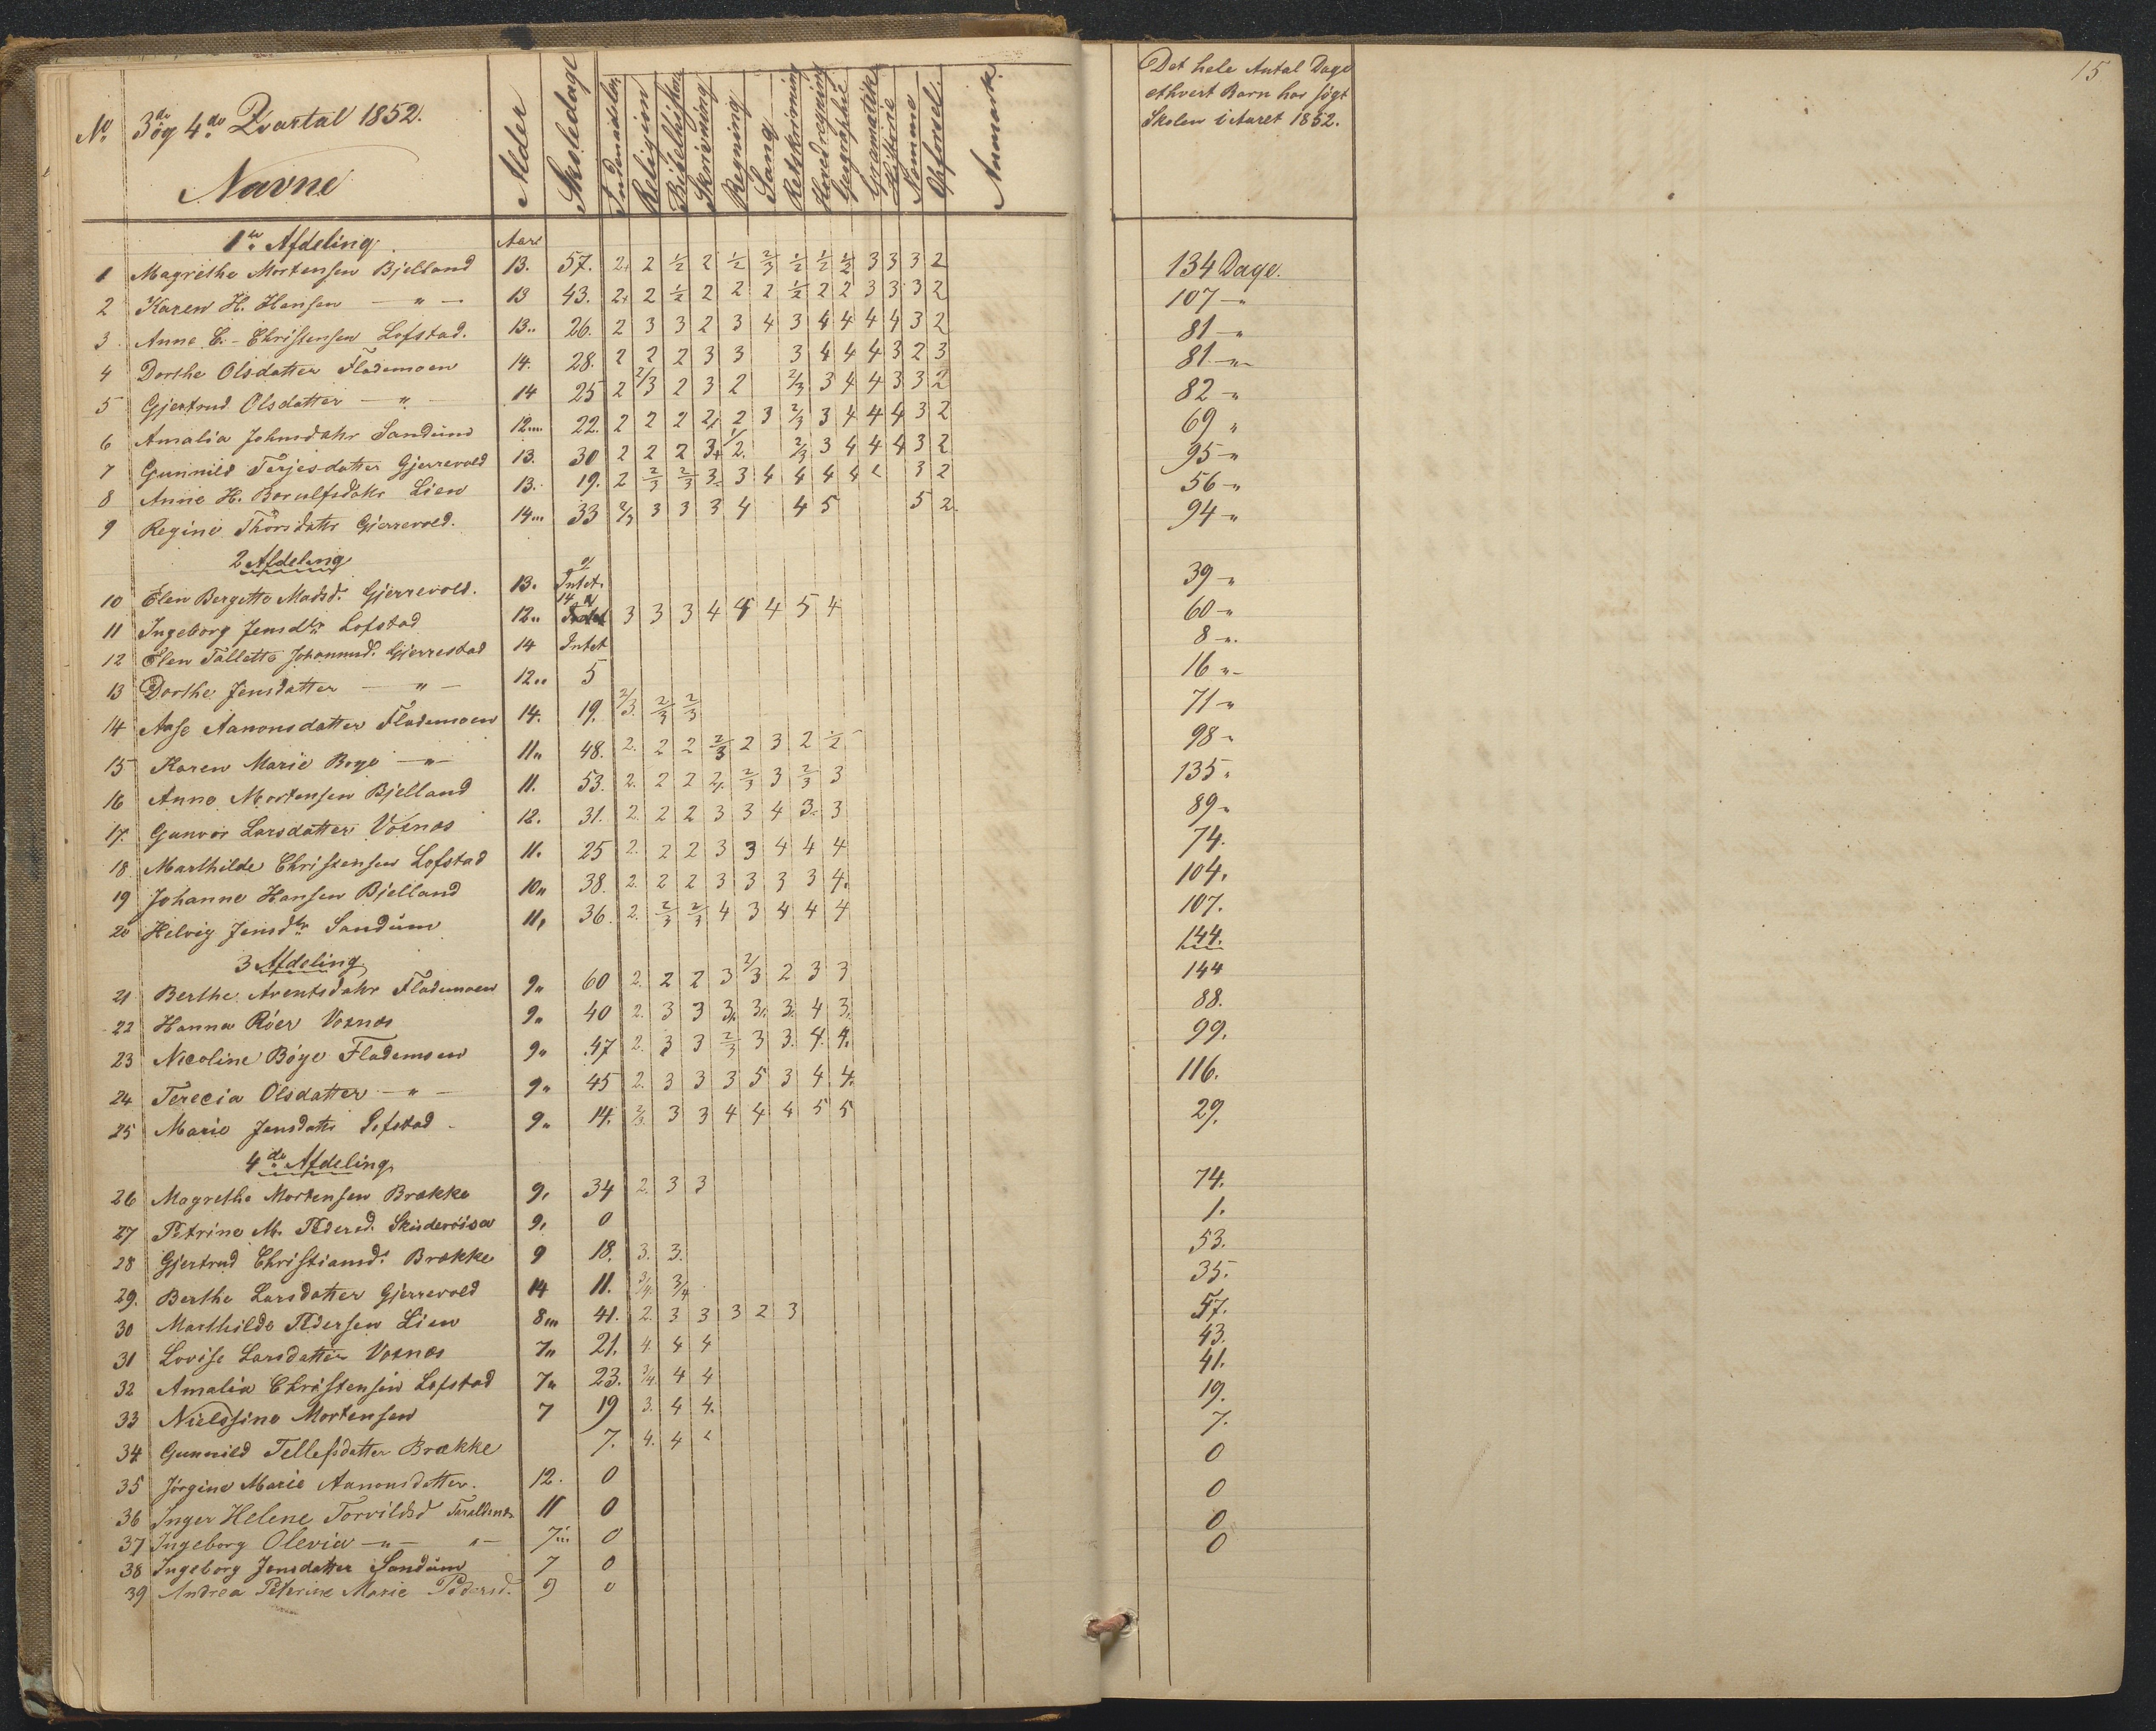 15
No 3die og 4de Qvartal 1852.
Navne Alder Skoledage Indenadslæs Religion Bibelhistorie Skrivning Regning Sang Retskrivning Hovedregning Geographie Gramatik Historie Nemme Opførsel Anmærk.
Det hele Antal Dage
ethvert Barn har søgt
Skolen i Aaret 1852.
1ste Afdeling. Aar
1 Magrethe Mortensen Bjelland 13. 57. 2. 2 ½ 2 ½ 2/3 ½ ½ ½ 3 3 3 2 134 Dage.
2 Karen H. Hansen — " — 13 43. 2. 2 ½ 2 2 2 ½ 2 2 3 3 3 2 107 — "
3 Anne C. Christensen Lofstad. 13.. 26. 2 3 3 2 3 4 3 4 4 4 4 3 2 81 — "
4 Dorthe Olsdatter Flademoen 14. 28. 2 2 2 3 3 3 4 4 4 3 2 3 81 — " —
5 Gjertrud Olsdatter — " — 14 25 2 2/3 2 3 2 2/3 3 4 4 3 3 2 82 — "
6 Amalia Johnsdatr Sandum 12... 22. 2 2 2 2. 2 3 2/3 3 4 4 4 3 2 69 "
7 Gunnild Terjesdatter Gjerrevold 13. 30 2 2 2 3. ½. 2/3 3 4 4 4 3 2 95 — "
8 Anne H. Borulfsdatr Lien 13. 19. 2 2/3 2/3 3. 3 4 4 4 4 3 2 56 — "
9 Regine Thorsdatr Gjerrevold. 14... 33 2/3 3 3 3 4 4 5 5 2. 94 — "
2 Afdeling
10 Elen Bergette Madsd. Gjerrevold. 13. Intet. 39 — "
11 Ingeborg Jensdtr Lofstad 12.. 14 3 3 3 4 4 4 5 4 60 — "
12 Elen Tallette Johannesd. Gjerrestad 14 Intet 8 — ".
13 Dorthe Jensdatter — " — 12.. 5 16 " —
14 Aase Aanonsdatter Flademoen 14. 19. 2/3. 2/3 2/3 71 — "
15 Karen Marie Boye — " — 11.. 48. 2. 2 2 2/3 2 3 2 ½ 98 "
16 Anne Mortensen Bjelland 11. 53. 2. 2 2 2. 2/3 3 2/3 3 135 "
17. Gunvor Larsdatter Voxnæs 12. 31. 2. 2 2 3 3 4 3. 3 89 "
18 Marthilde Christensen Lofstad 11. 25 2. 2 2 3 3 4 4 4 74.
19 Johanne Hansen Bjelland 10.. 38. 2. 2 2 3 3 3 3 4. 104.
20 Helvig Jensdtr Sandum 11. 36. 2. 2/3 2/3 4 3 4 4 4 107.
144.
3 Afdeling
21 Berthe Arentsdatr Flademoen 9.. 60 2. 2 2 3 2/3 2 3 3 144
22 Hanna Röer Voxnæs 9.. 40 2. 3 3 3. 3. 3. 4 3. 88.
23 Nicoline Böye Flademoen 9.. 47 2. 3 3 2/3 3 3. 4. 4. 99.
24 Terecia Olsdatter — " — 9.. 45 2. 3 3 3 5 3 4 4. 116.
25 Marie Jensdatr Lofstad 9.. 14. 2/3. 3 3 4 4 4 5 5 29.
4de Afdeling
26 Magrethe Mortensen Brække 9. 34 2. 3 3 74.
27 Petrine M. Pedersd. 9. 0 1.
28 Gjertrud Christiansd. Brække 9 18. 3. 3. 53.
29. Berthe Larsdatter Gjerrevold 14 11. 3/4. 3/4 35.
30 Marthilde Pedersen Lien 8... 41. 2. 3 3 3 2 3 57.
31 Lovise Larsdatter Voxnæs 7.. 21. 4. 4 4 43.
32 Amalia Christensen Lofstad 7.. 23. 3/4. 4 4 41.
33 Nielssine Mortensen 7 19 3. 4 4. 19.
34 Gunnild Tellefsdatter Brække 7. 4. 4 7.
35 Jörgine Marie Aanonsdatter. 12. 0 0
36 Inger Helene Torvildsd 11 0 0
37 Ingeborg Olevia — " — " — 7... 0 0
38 Ingeborg Jensdatter Sandum 7 0 0
39 Andrea Peterine Marie Pedersd. 9 0